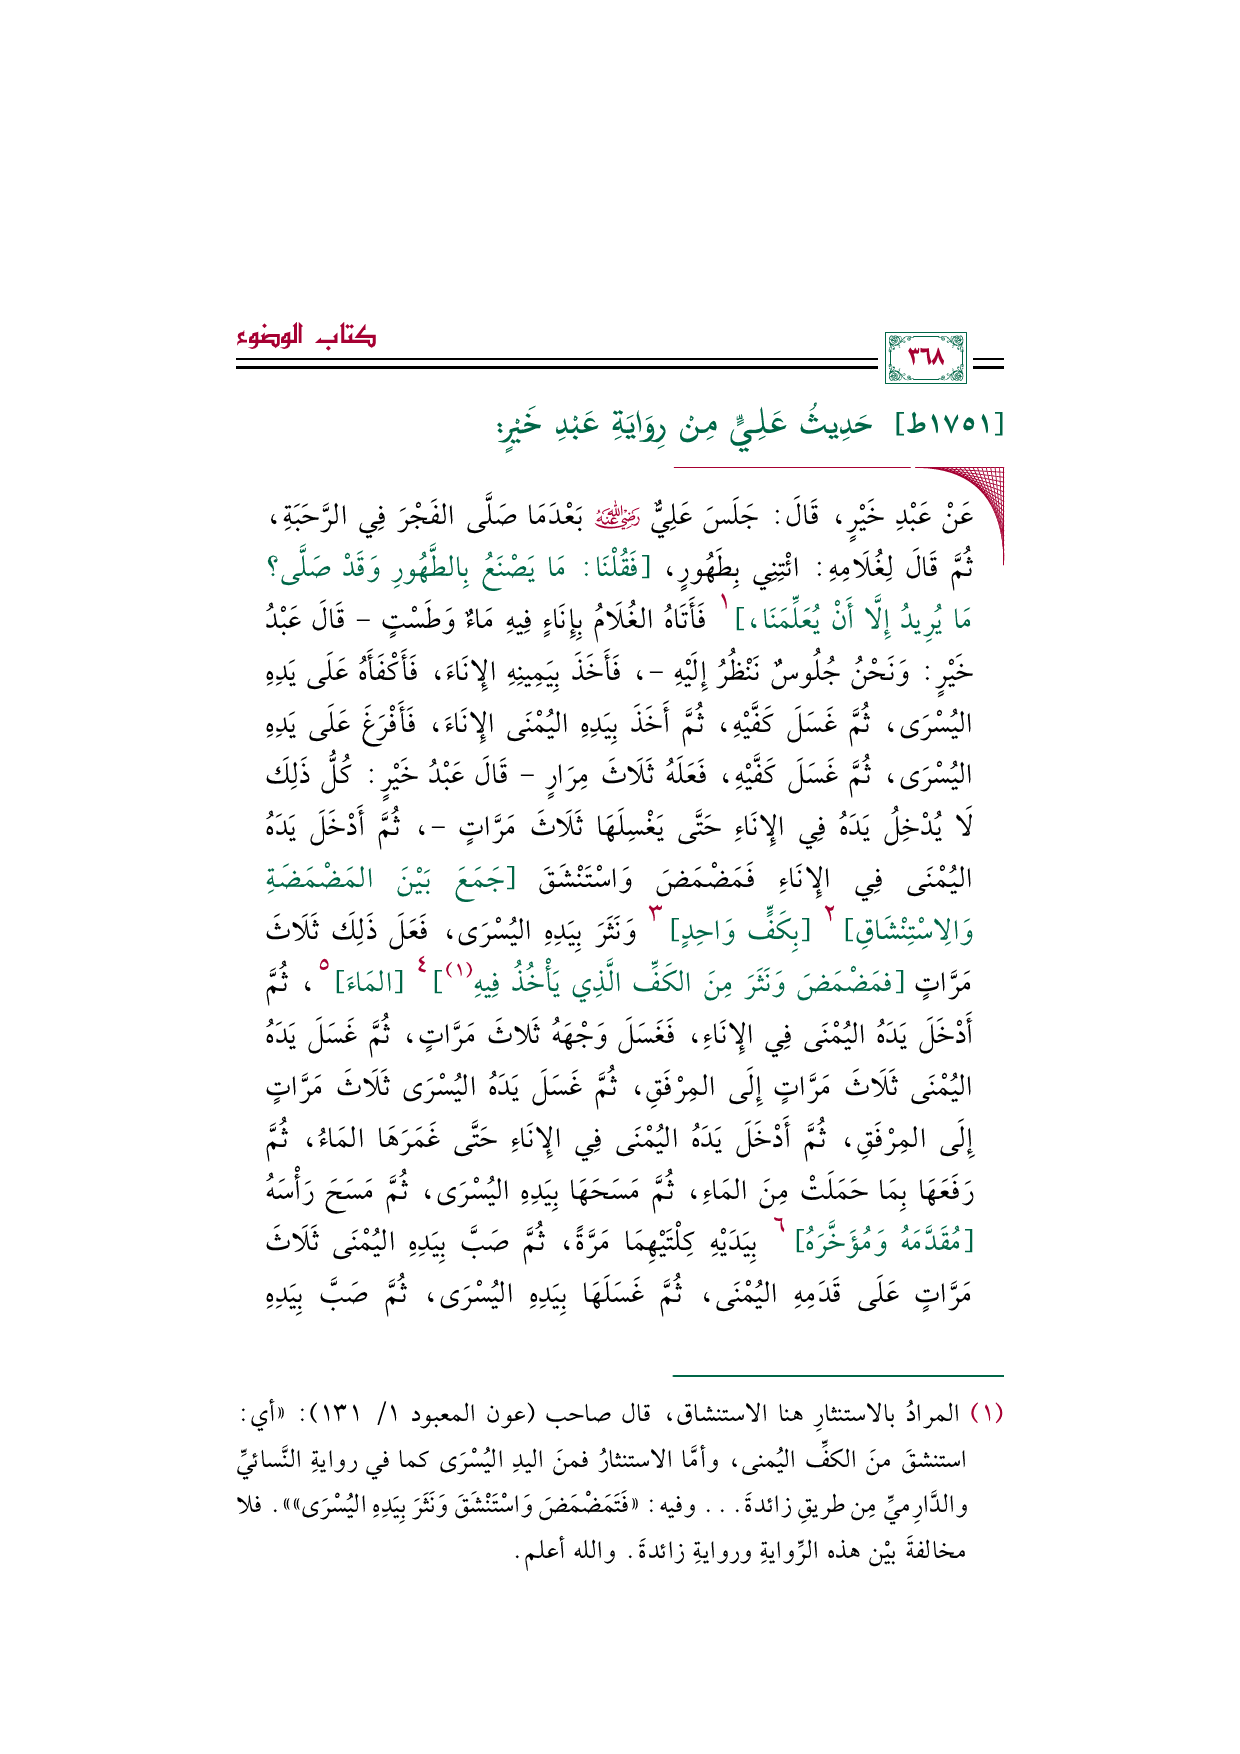 كتاب الوضوء
٣٦٨
[١٧٥١ط] حَدِيثُ عَلِيٍّ مِنْ رِوَايَةِ عَبْدِ خَيْرٍ:
عَنْ عَبْدِ خَيْرٍ، قَالَ: جَلَسَ عَلِيٌّ رضي الله عنه بَعْدَمَا صَلَّى الفَجْرَ فِي الرَّحَبَةِ،
ثُمَّ قَالَ لِغُلَامِهِ: ائْتِنِي بِطَهُورٍ، [فَقُلْنَا: مَا يَصْنَعُ بِالطَّهُورِ وَقَدْ صَلَّى؟
مَا يُرِيدُ إِلَّا أَنْ يُعَلِّمَنَا،]١ فَأَتَاهُ الغُلَامُ بِإِنَاءٍ فِيهِ مَاءٌ وَطَسْتٍ – قَالَ عَبْدُ
خَيْرٍ: وَنَحْنُ جُلُوسٌ نَنْظُرُ إِلَيْهِ –، فَأَخَذَ بِيَمِينِهِ الإِنَاءَ، فَأَكْفَأَهُ عَلَى يَدِهِ
اليُسْرَى، ثُمَّ غَسَلَ كَفَّيْهِ، ثُمَّ أَخَذَ بِيَدِهِ اليُمْنَى الإِنَاءَ، فَأَفْرَغَ عَلَى يَدِهِ
اليُسْرَى، ثُمَّ غَسَلَ كَفَّيْهِ، فَعَلَهُ ثَلَاثَ مِرَارٍ – قَالَ عَبْدُ خَيْرٍ: كُلُّ ذَلِكَ
لَا يُدْخِلُ يَدَهُ فِي الإِنَاءِ حَتَّى يَغْسِلَهَا ثَلَاثَ مَرَّاتٍ –، ثُمَّ أَدْخَلَ يَدَهُ
اليُمْنَى فِي الإِنَاءِ فَمَضْمَضَ وَاسْتَنْشَقَ [جَمَعَ بَيْنَ المَضْمَضَةِ
وَالِاسْتِنْشَاقِ]٢ [بِكَفٍّ وَاحِدٍ]٣ وَنَثَرَ بِيَدِهِ اليُسْرَى، فَعَلَ ذَلِكَ ثَلَاثَ
مَرَّاتٍ [فمَضْمَضَ وَنَثَرَ مِنَ الكَفِّ الَّذِي يَأْخُذُ فِيهِ(١)]٤ [المَاءَ]٥، ثُمَّ
أَدْخَلَ يَدَهُ اليُمْنَى فِي الإِنَاءِ، فَغَسَلَ وَجْهَهُ ثَلَاثَ مَرَّاتٍ، ثُمَّ غَسَلَ يَدَهُ
اليُمْنَى ثَلَاثَ مَرَّاتٍ إِلَى المِرْفَقِ، ثُمَّ غَسَلَ يَدَهُ اليُسْرَى ثَلَاثَ مَرَّاتٍ
إِلَى المِرْفَقِ، ثُمَّ أَدْخَلَ يَدَهُ اليُمْنَى فِي الإِنَاءِ حَتَّى غَمَرَهَا المَاءُ، ثُمَّ
رَفَعَهَا بِمَا حَمَلَتْ مِنَ المَاءِ، ثُمَّ مَسَحَهَا بِيَدِهِ اليُسْرَى، ثُمَّ مَسَحَ رَأْسَهُ
[مُقَدَّمَهُ وَمُؤَخَّرَهُ]٦ بِيَدَيْهِ كِلْتَيْهِمَا مَرَّةً، ثُمَّ صَبَّ بِيَدِهِ اليُمْنَى ثَلَاثَ
مَرَّاتٍ عَلَى قَدَمِهِ اليُمْنَى، ثُمَّ غَسَلَهَا بِيَدِهِ اليُسْرَى، ثُمَّ صَبَّ بِيَدِهِ
(١) المرادُ بالاستنثارِ هنا الاستنشاق، قال صاحب (عون المعبود ١/ ١٣١): «أي:
استنشقَ منَ الكفِّ اليُمنى، وأمَّا الاستنثارُ فمنَ اليدِ اليُسْرَى كما في روايةِ النَّسائيِّ
والدَّارِميِّ مِن طريقِ زائدةَ... وفيه: «فَتَمَضْمَضَ وَاسْتَنْشَقَ وَنَثَرَ بِيَدِهِ اليُسْرَى»». فلا
مخالفةَ بيْن هذه الرِّوايةِ وروايةِ زائدةَ. والله أعلم.